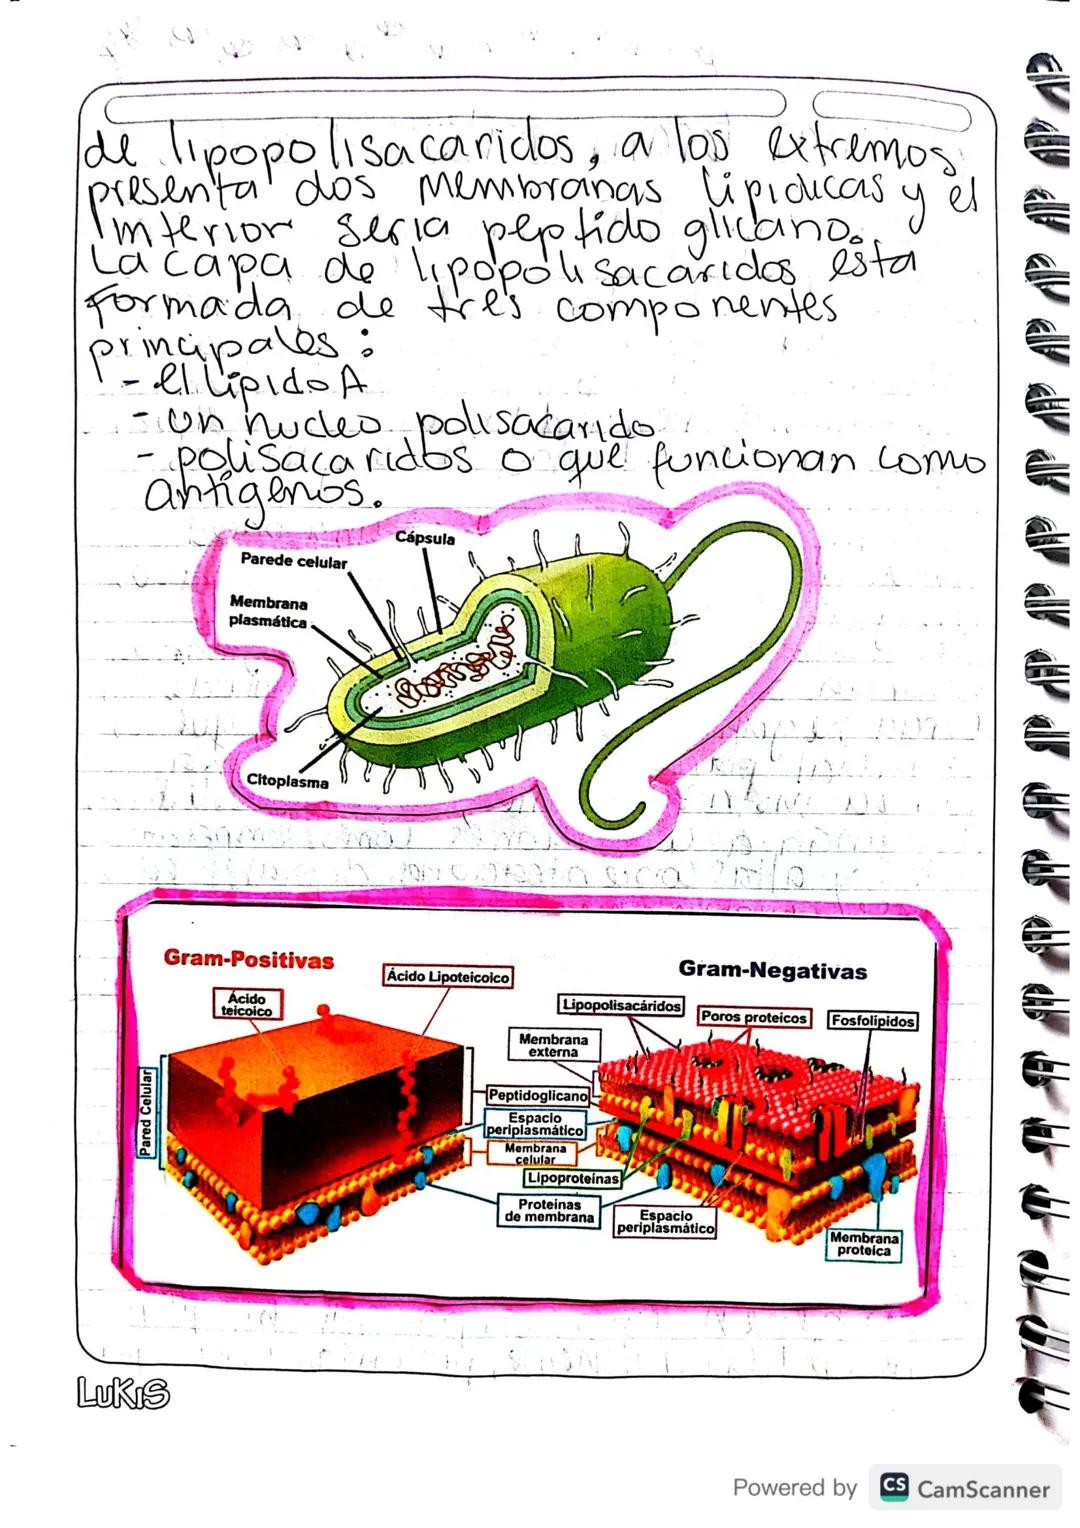 de lipopolisacaridos, a los extremos
presenta dos membranas lipidicas y el
interior seria peptido glicano.
La capa de lipopolisacaridos esta
formada de tres componentes
principales:
- el lípido A
- un nucleo polisacarido
- polisacaridos o que funcionan como
antígenos.
Cápsula
Parede celular
Membrana
plasmática
Citoplasma
Gram-Positivas
Ácido Lipoteicoico
Gram-Negativas
Ácido
teicoico
Lipopolisacáridos
Poros proteicos
Fosfolípidos
Membrana
externa
Pared Celular
Peptidoglicano
Espacio
periplasmático
Membrana
celular
Lipoproteínas
Proteínas
de membrana
Espacio
periplasmático
Membrana
proteica
LUKIS
Powered by CS CamScanner